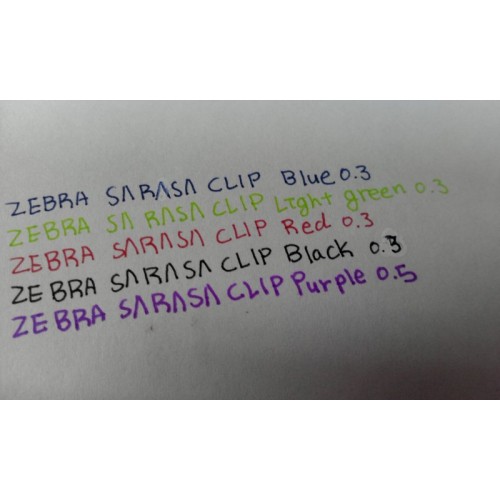 ZEBRA SARASA CLIP Blue 0.3
ZEBRA SARASA CLIP Light green 0.3
ZEBRA SARASA CLIP Red 0.3
ZEBRA SARASA CLIP Black 0.3
ZEBRA SARASA CLIP Purple 0.5